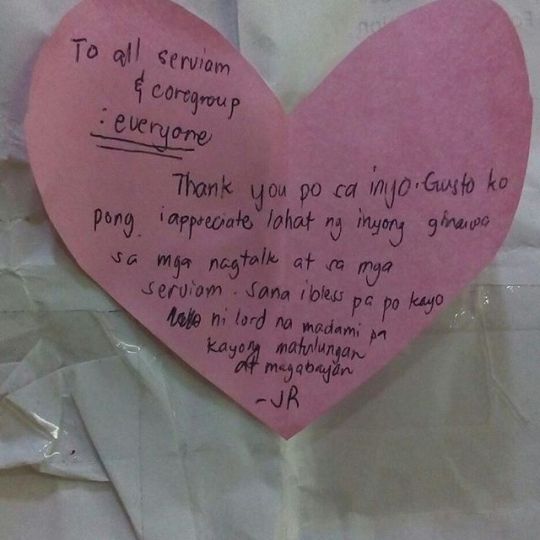 To all serviam
& coregroup
: everyone
Thank you po sa inyo. Gusto ko
pong iappreciate lahat ng inyong ginawa
sa mga nagtalk at sa mga
serviam. Sana ibless pa po kayo
ni lord na madami pa
kayong matulungan
at magabayan
- JR